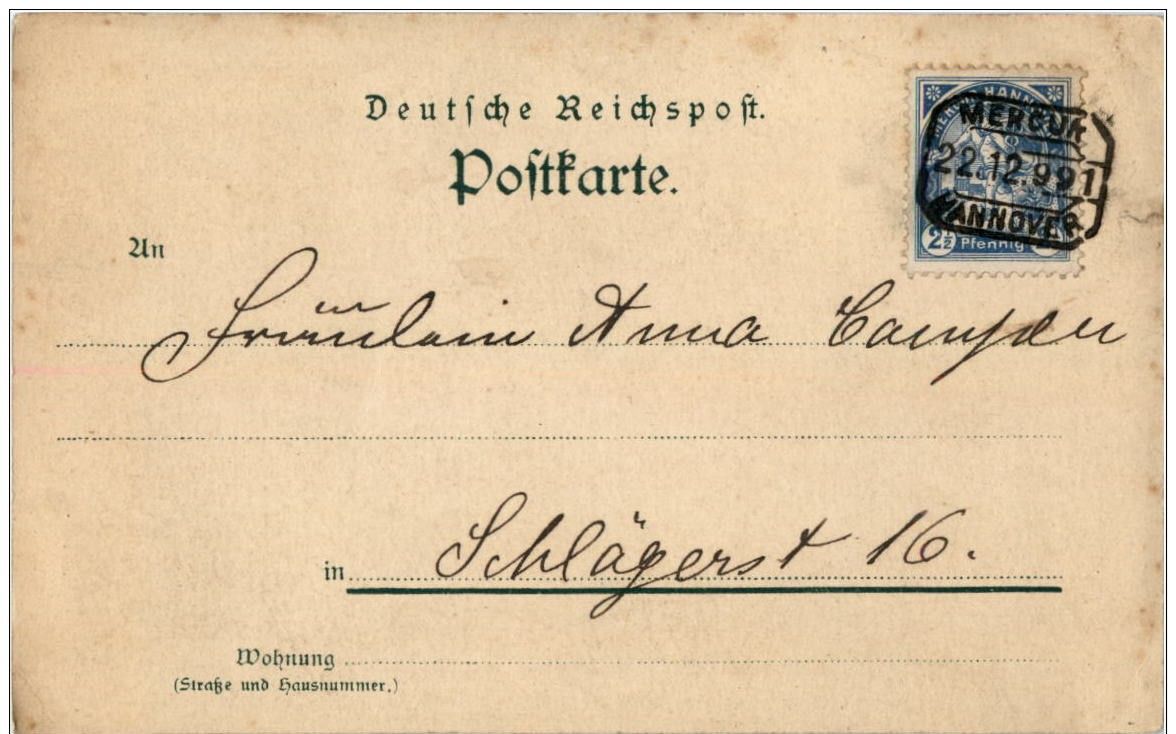 Deutsche Reichspost.
Postkarte.
MERCUR HANN
MERCUR
22.12.99 1
HANNOVER
2½ Pfennig
An
Fräulein Anna
in Schlägerst 16.
Wohnung
(Straße und Hausnummer.)